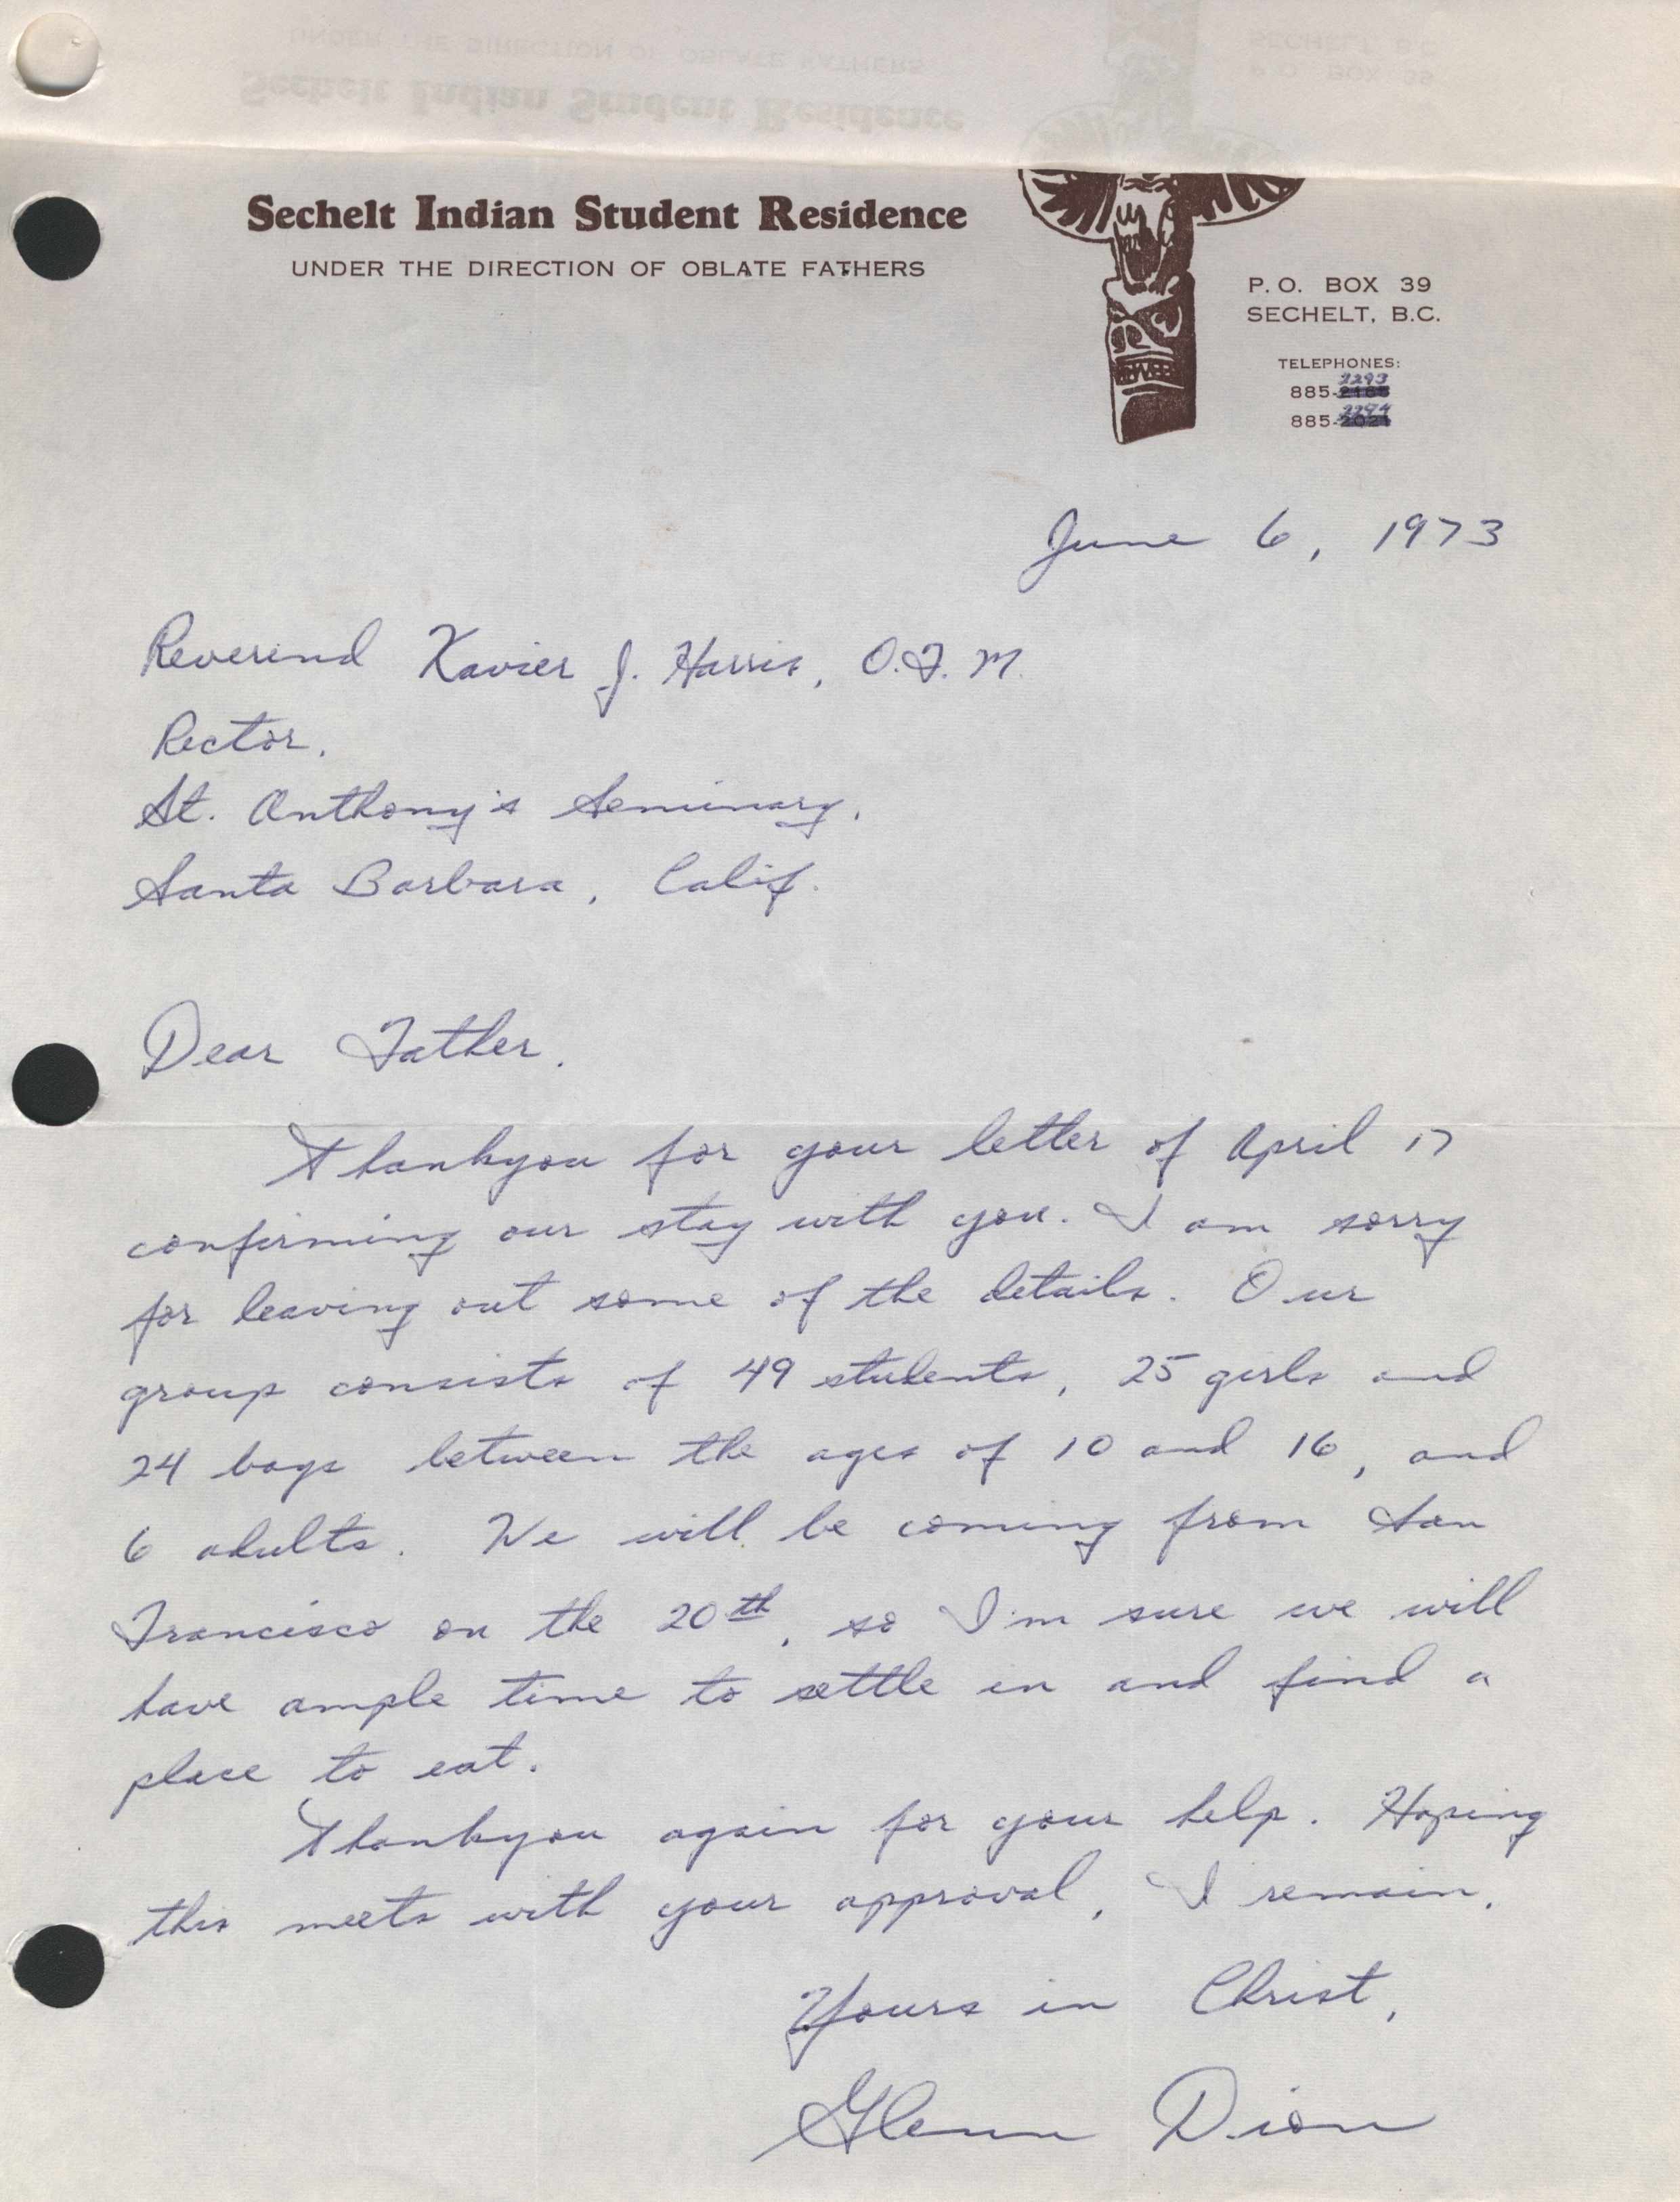 Sechelt Indian Student Residence
UNDER THE DIRECTION OF OBLATE FATHERS
P.O. BOX 39
SECHELT, B.C.
TELEPHONES:
885-2293
885-2294
June 6, 1973
Reverend Xavier J. Harris, O.F.M.
Rector,
St. Anthony's Seminary,
Santa Barbara, Calif.
Dear Father,
Thankyou for your letter of April 17
confirming our stay with you. I am sorry
for leaving out some of the details. Our
group consists of 49 students, 25 girls and
24 boys between the ages of 10 and 16, and
6 adults. We will be coming from San
Francisco on the 20th, so I'm sure we will
have ample time to settle in and find a
place to eat.
Thankyou again for your help. Hoping
this meets with your approval, I remain,
Yours in Christ,
Glenn Dion